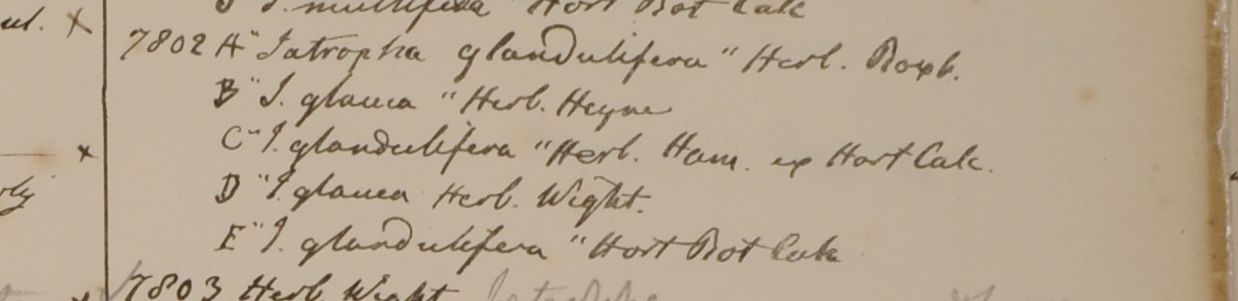 J. multifida " Hort Bot Calc
ul. x
7802 A "Jatropha glandulifera" Herb. Roxb.
B "J. glauca " Herb. Heyne
C "J. glandulifera "Herb. Ham. ex Hort Calc.
x
D "J. glauca Herb. Wight.
E "J. glandulifera " Hort Bot Calc
7803 Herb. Wight Jatropha